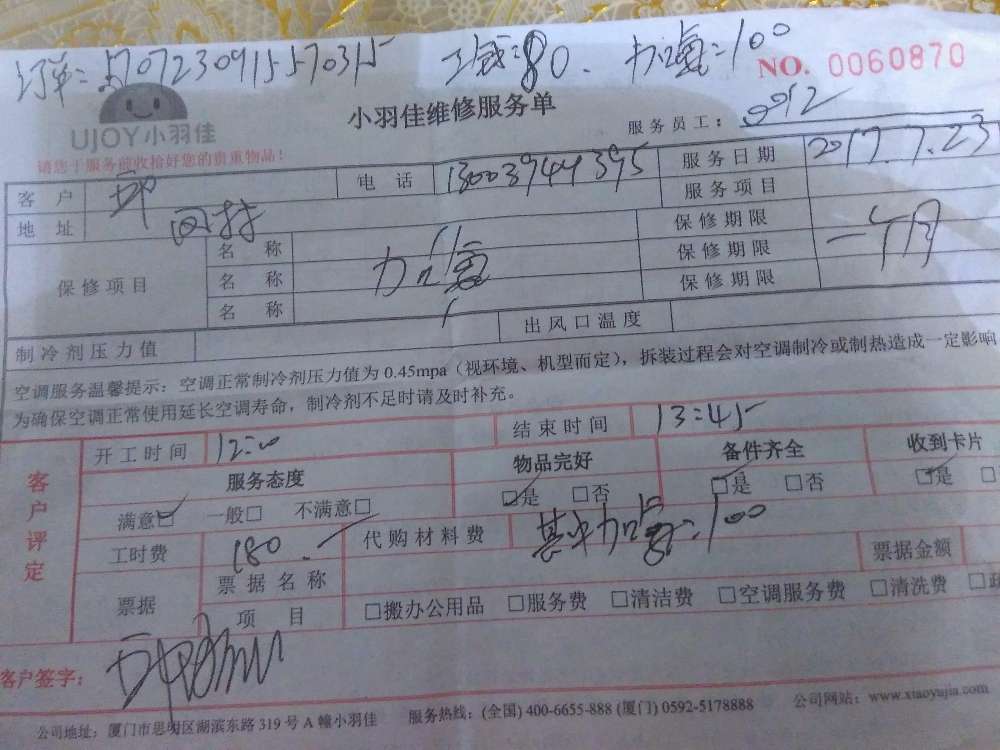 订单:570723091557031５ 工钱:80. 加氟=100
NO. 0060870
UJOY小羽佳
小羽佳维修服务单
服务员工:
请您于服务前收拾好您的贵重物品!
客户 电话 13003944395 服务日期 2017.7.23
地址 服务项目
保修项目 名称 加氟 保修期限 一个月
名称 保修期限
名称 保修期限
制冷剂压力值 出风口温度
空调服务温馨提示:空调正常制冷剂压力值为 0.45mpa(视环境、机型而定),拆装过程会对空调制冷或制热造成一定影响
为确保空调正常使用延长空调寿命,制冷剂不足时请及时补充。
客户评定
开工时间 12:00 结束时间 13:45
服务态度 物品完好 备件齐全 收到卡片
满意☑ 一般□ 不满意□ ☑是 □否 ☑是 □否 ☑是 □
工时费 180. 代购材料费 加氟=100 票据金额
票据 票据名称
项目 □搬办公用品 □服务费 □清洁费 □空调服务费 □清洗费 □
客户签字:
公司地址:厦门市思明区湖滨东路 319 号 A 幢小羽佳 服务热线:(全国) 400-6655-888 (厦门) 0592-5178888 公司网站:www.xiaoyujia.com